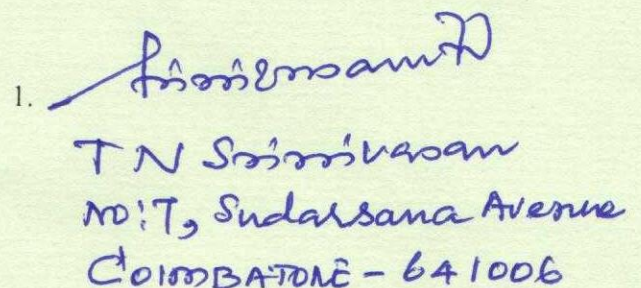 1.
TN Srinivasan
NO:7, Sudarsana Avenue
COIMBATORE - 641006